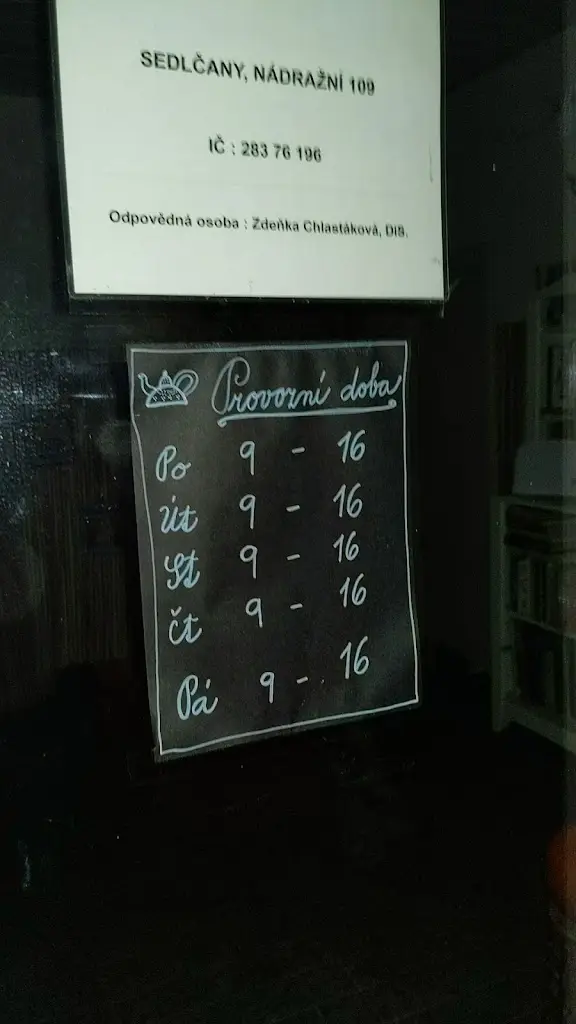 SEDLČANY, NÁDRAŽNÍ 109
IČ : 283 76 196
Odpovědná osoba : Zdeňka Chlastáková, DiS.
Provozní doba
Po 9 - 16
Út 9 - 16
St 9 - 16
Čt 9 - 16
Pá 9 - 16